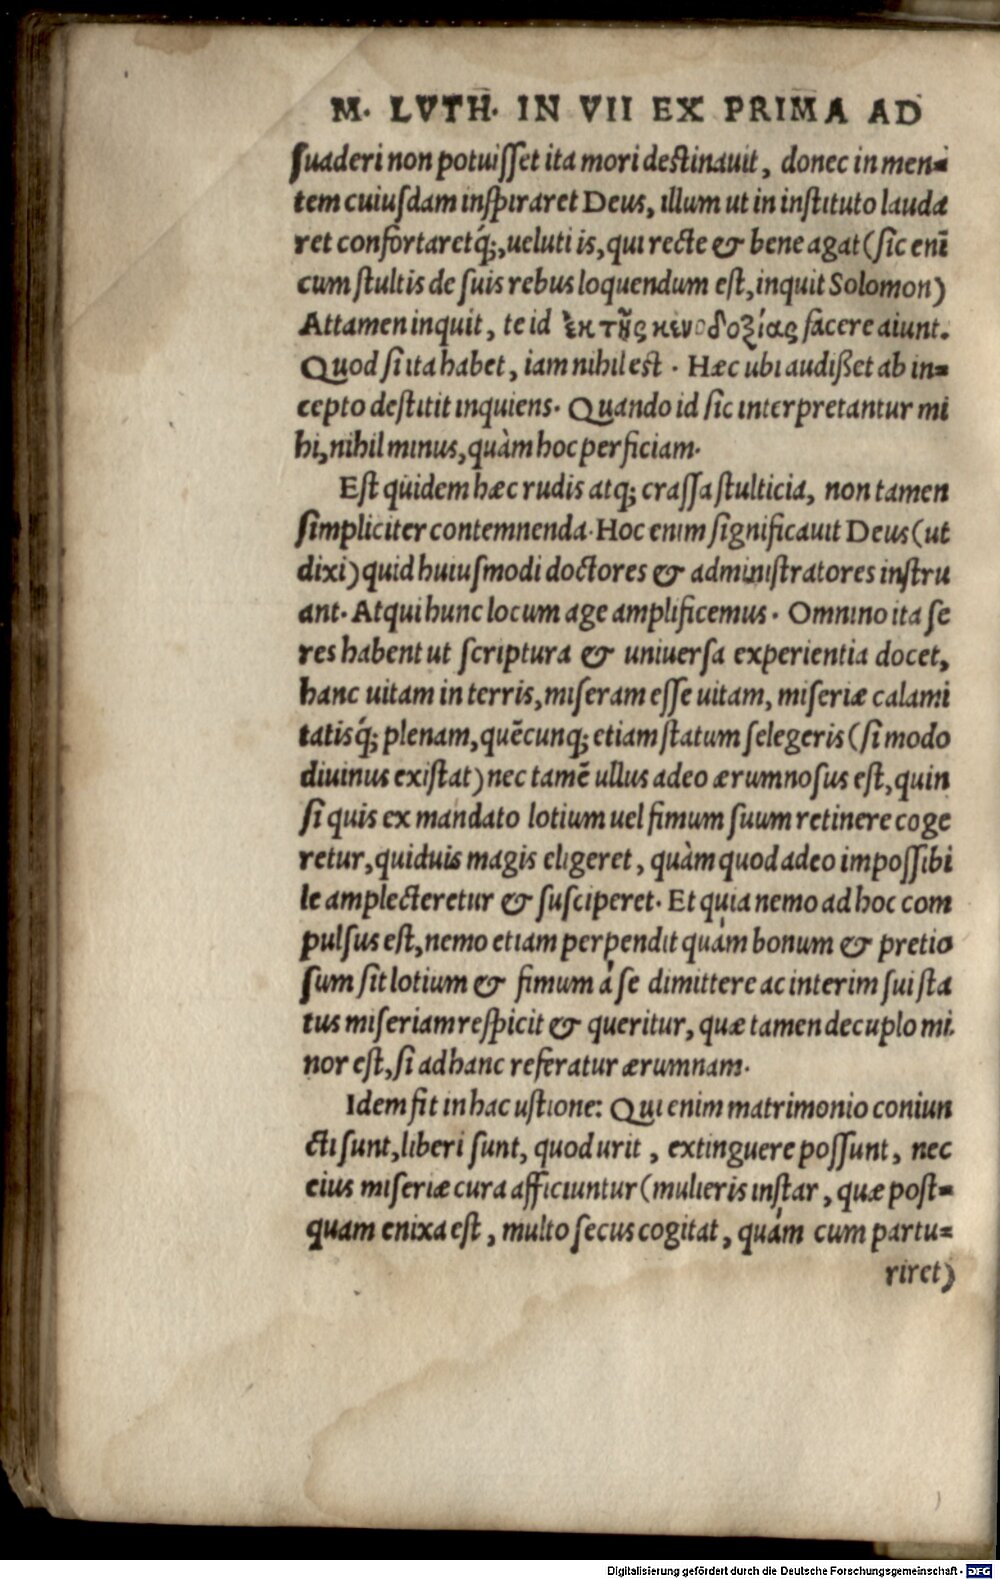 M. LVTH. IN VII EX PRIMA AD
suaderi non potuisset ita mori destinauit, donec in men-
tem cuiusdam inspiraret Deus, illum ut in instituto lauda
ret confortaretq́;, ueluti is, qui recte & bene agat (sic enī
cum stultis de suis rebus loquendum est, inquit Solomon)
Attamen inquit, te id ἐκ τῆς κενοδοξίας facere aiunt.
Quod si ita habet, iam nihil est. Hæc ubi audißet ab in=
cepto destitit inquiens. Quando id sic interpretantur mi
hi, nihil minus, quàm hoc perficiam.
Est quidem hæc rudis atq; crassa stulticia, non tamen
simpliciter contemnenda. Hoc enim significauit Deus (ut
dixi) quid huiusmodi doctores & administratores instru
ant. Atqui hunc locum age amplificemus. Omnino ita se
res habent ut scriptura & uniuersa experientia docet,
hanc uitam in terris, miseram esse uitam, miseriæ calami
tatisq́; plenam, quēcunq; etiam statum selegeris (si modo
diuinus existat) nec tamē ullus adeo ærumnosus est, quin
si quis ex mandato lotium uel fimum suum retinere coge
retur, quiduis magis eligeret, quàm quod adeo impossibi
le amplecteretur & susciperet. Et quia nemo ad hoc com
pulsus est, nemo etiam perpendit quàm bonum & pretio
sum sit lotium & fimum à se dimittere ac interim sui sta
tus miseriam respicit & queritur, quæ tamen decuplo mi
nor est, si ad hanc referatur ærumnam.
Idem fit in hac ustione: Qui enim matrimonio coniun
cti sunt, liberi sunt, quod urit, extinguere possunt, nec
eius miseriæ cura afficiuntur (mulieris instar, quæ post=
quam enixa est, multo secus cogitat, quàm cum partu=
riret)
Digitalisierung gefördert durch die Deutsche Forschungsgemeinschaft - DFG